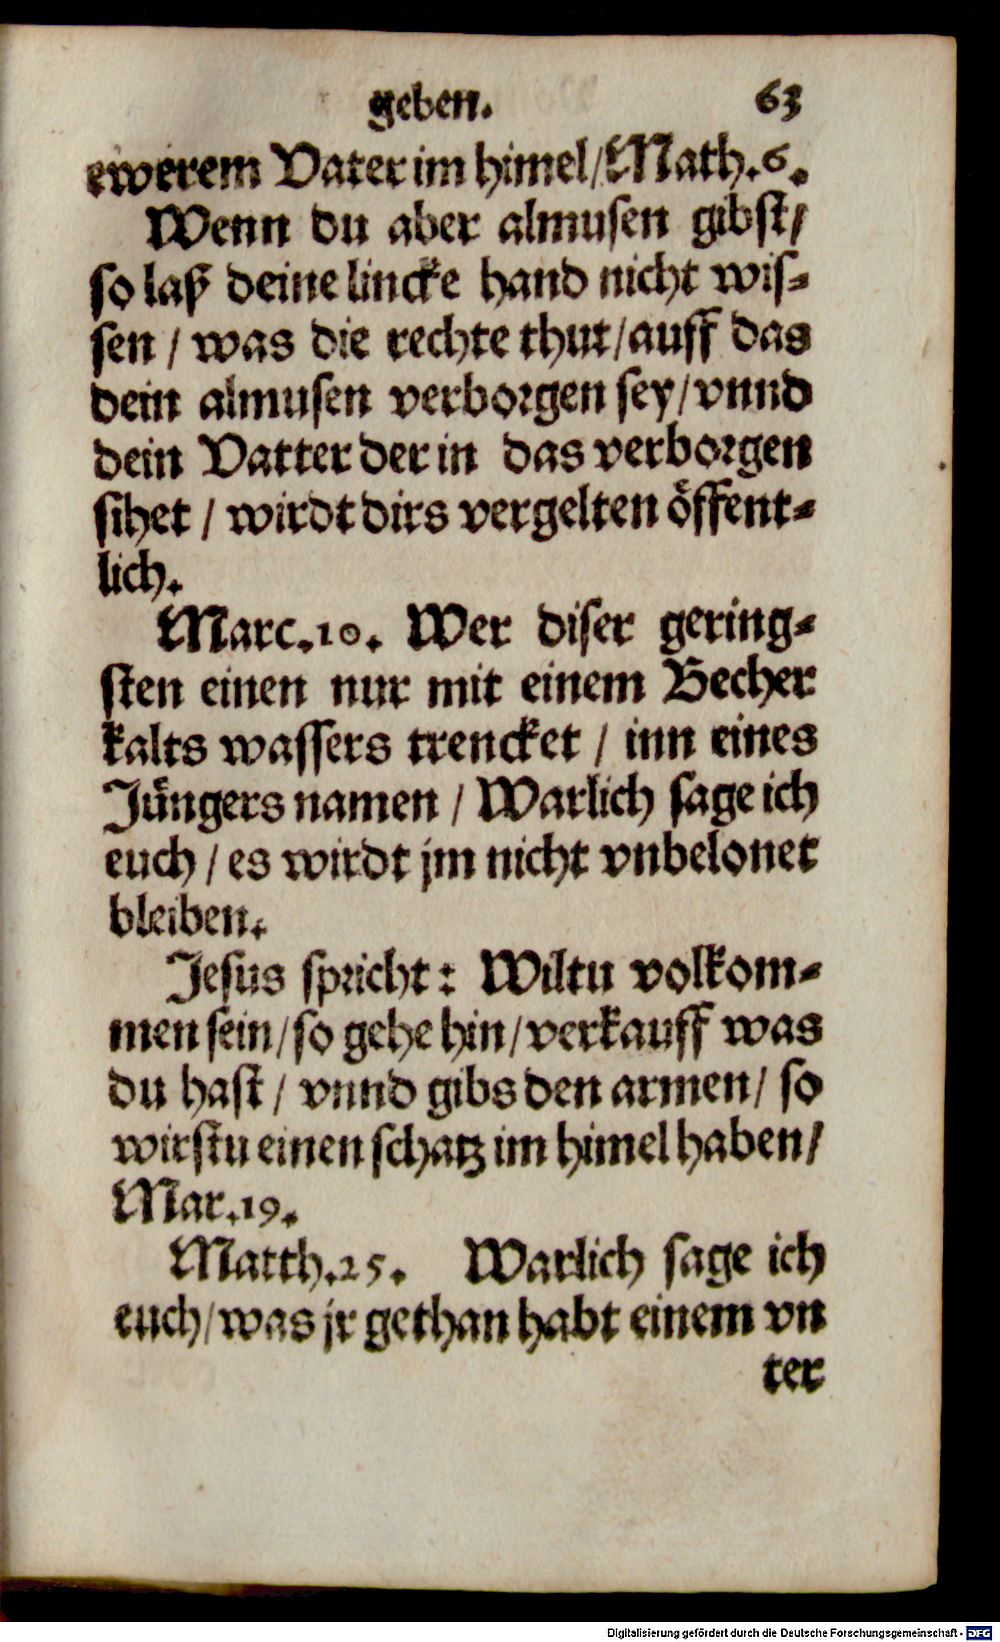 geben. 63
ewerem Vater im himel/Math.6.
Wenn du aber almusen gibst/
so laß deine lincke hand nicht wis-
sen / was die rechte thut/auff das
dein almusen verborgen sey/vnnd
dein Vatter der in das verborgen
sihet / wirdt dirs vergelten öffent-
lich.
Marc.10. Wer diser gering-
sten einen nur mit einem Becher
kalts wassers trencket / inn eines
Jüngers namen / Warlich sage ich
euch / es wirdt jm nicht vnbelonet
bleiben.
Jesus spricht: Wiltu volkom-
men sein/so gehe hin/verkauff was
du hast / vnnd gibs den armen/ so
wirstu einen schatz im himel haben/
Mar.19.
Matth.25. Warlich sage ich
euch/was jr gethan habt einem vn
ter
Digitalisierung gefördert durch die Deutsche Forschungsgemeinschaft - DFG